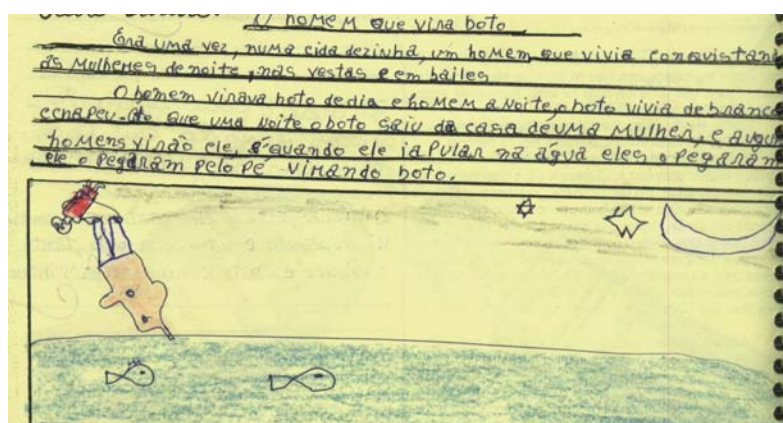 O homem que vira boto
Era uma vez, numa cidadezinha, um homem que vivia conquistand
as mulheres de noite, nas vestas e em bailes
O homem virava boto de dia e homem a noite, o boto vivia de branco
e chapeu. que uma noite o boto saiu da casa de uma mulher, e
homens virão ele, e quando ele ia pular na água eles o pegaram
ele o pegaram pelo pé virando boto.